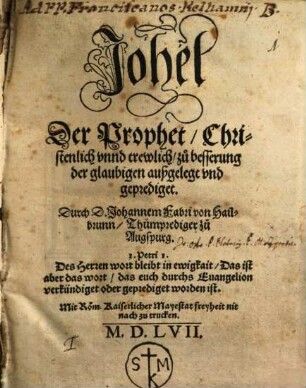 Ad FF. Franciscanos Kelhamij B.
Johel
Der Prophet / Chri-
stenlich vnnd erewlich / zů besserung
der glaubigen außgelegt vnd
geprediget.
Durch D. Johannem Fabri von Hail-
brunn / Thůmprediger zů
Augspurg.
1. Petri 1.
Des Herren wort bleibt in ewigkait / Das ist
aber das wort / das euch durchs Euangelion
verkündiget oder geprediget worden ist.
Mit Röm. Kaiserlicher Mayestat freyheit nit
nach zu trucken.
M. D. LVII.
S M K